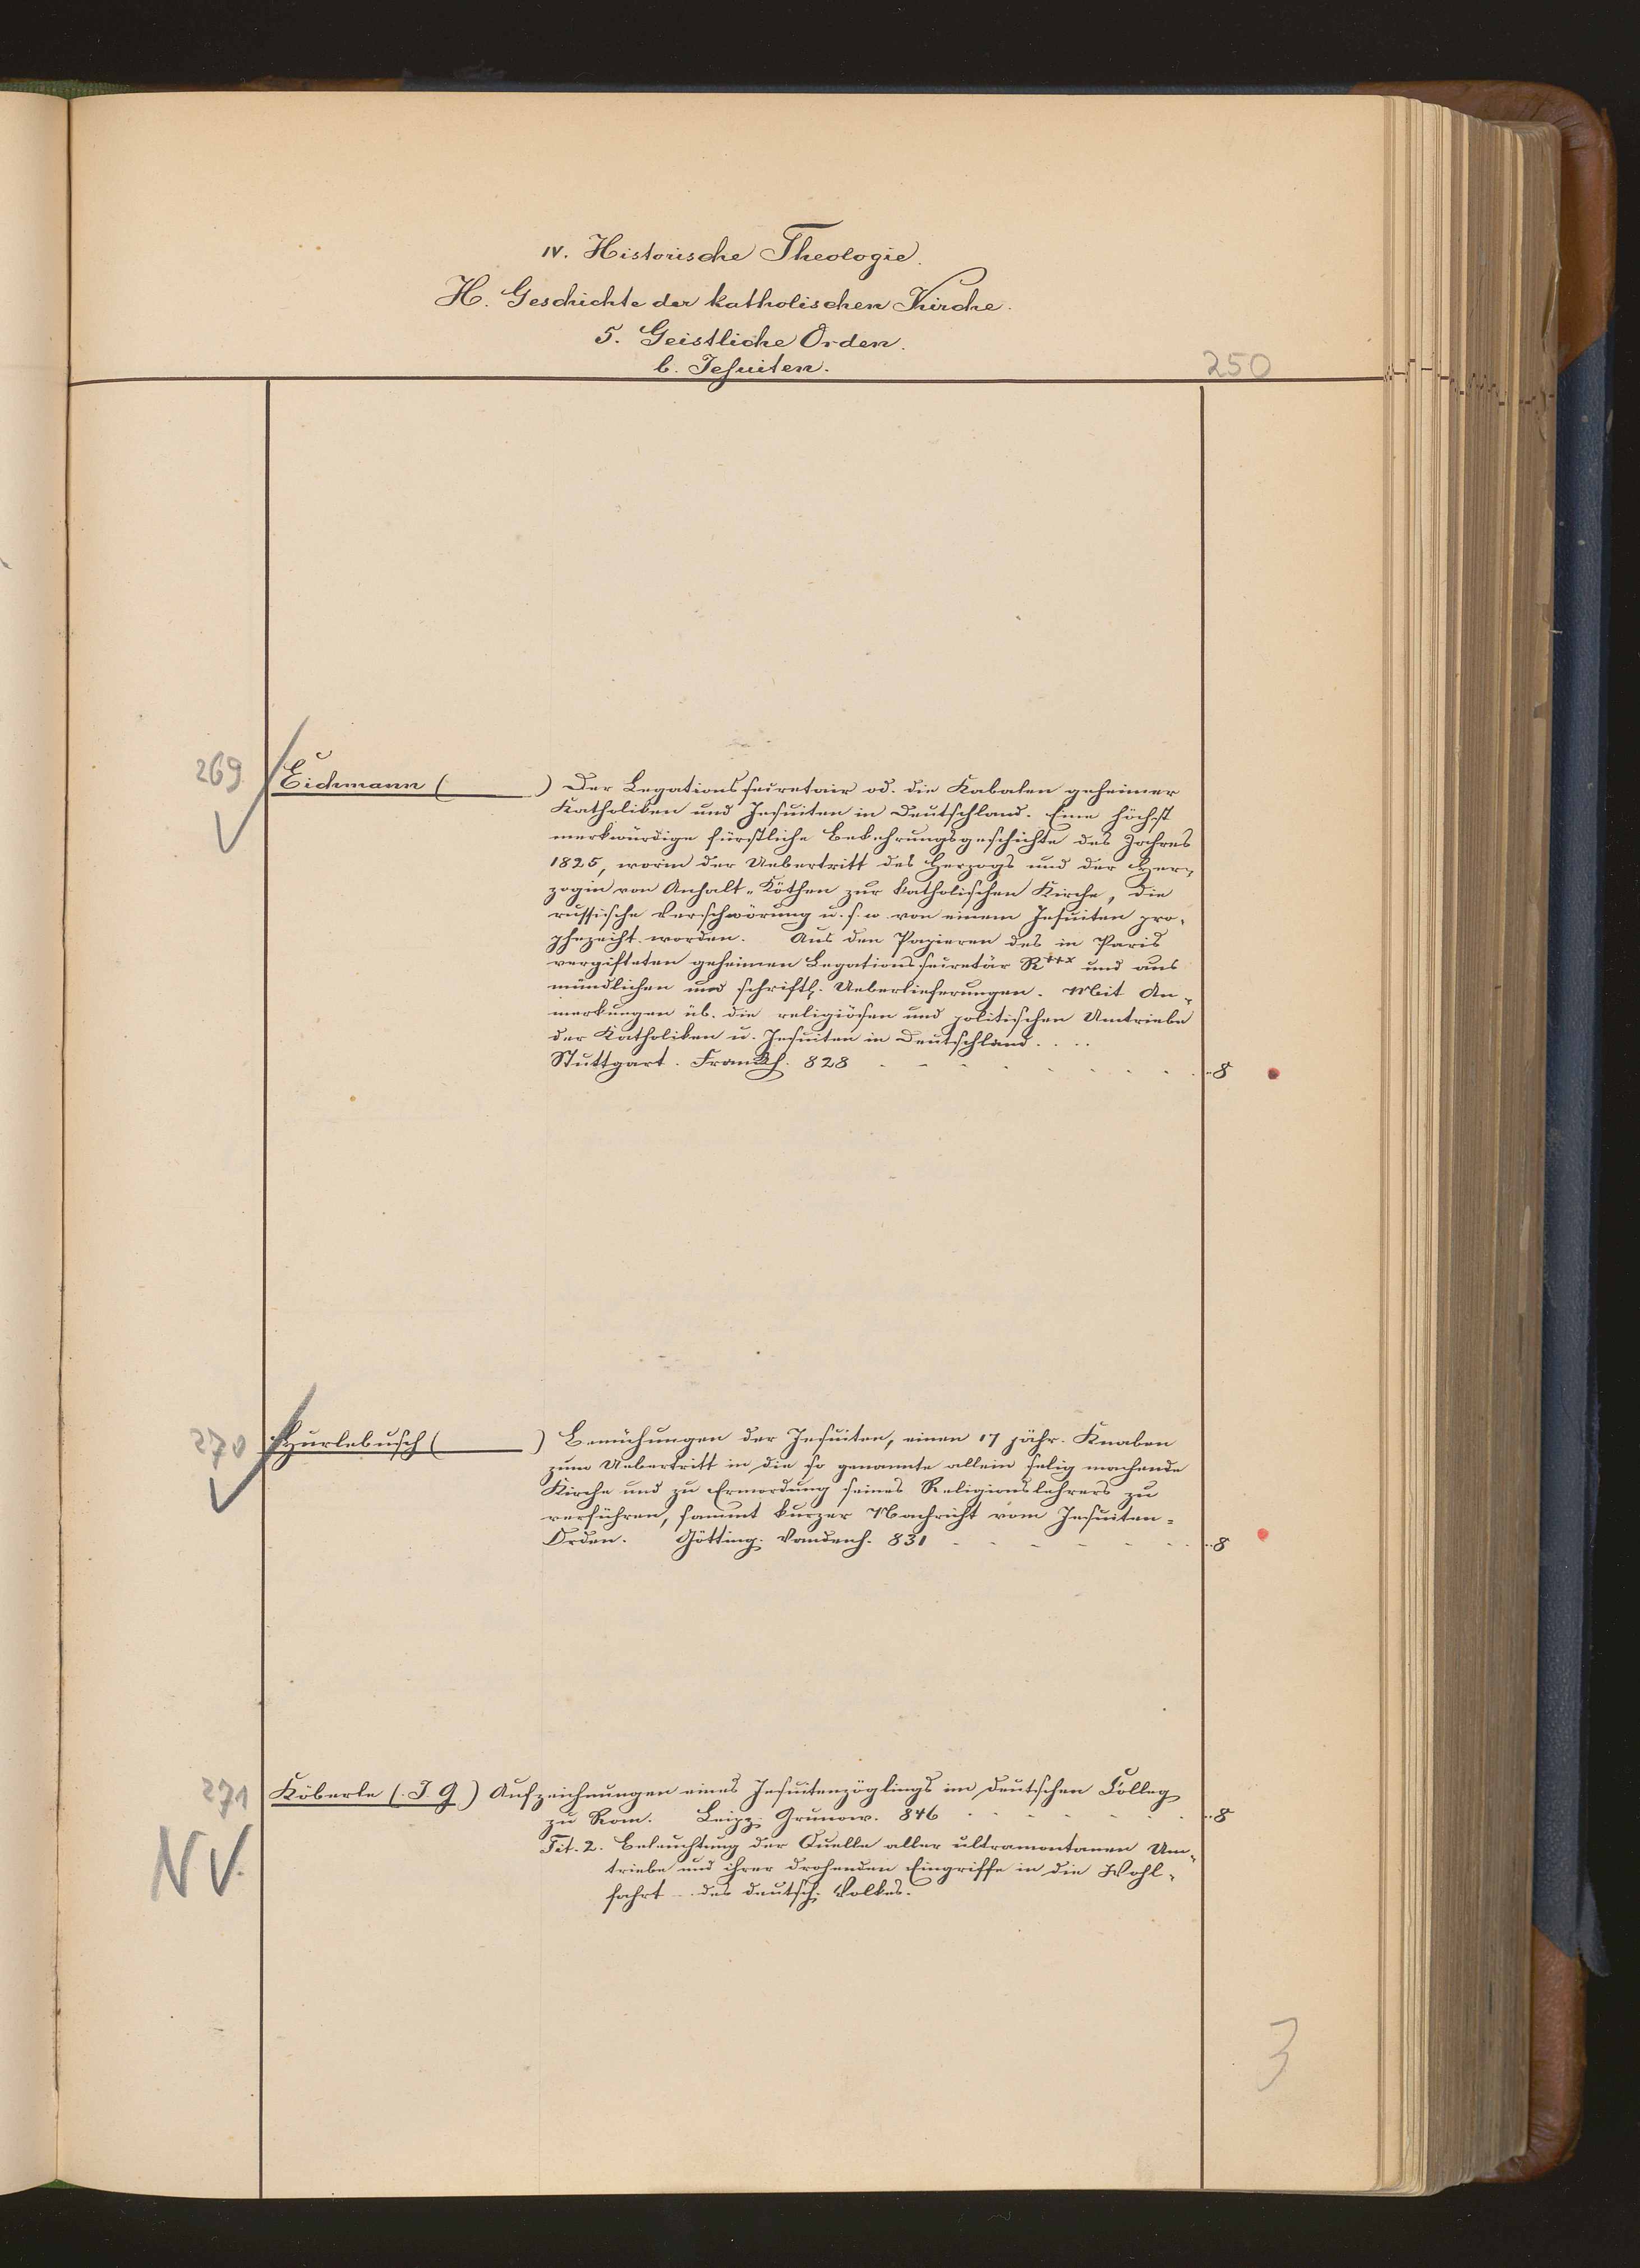 IV. Historische Theologie.
H. Geschichte der katholischen Kirche.
5. Geistliche Orden.
b. Jesuiten.
250
269 Eichmann (______) Der Legationssecretair od. die Kabalen geheimer
Katholiken und Jesuiten in Deutschland. Eine höchst
merkwürdige fürstliche Bekehrungsgeschichte des Jahres
1825, worin der Uebertritt des Herzogs und der Her-
zogin von Anhalt-Köthen zur katholischen Kirche, die
russische Verschwörung u. s. w. von einem Jesuiten pro-
phezeiht worden. Aus den Papieren des in Paris
vergifteten geheimen Legationssecretär R*** und aus
mündlichen und schriftl. Ueberlieferungen. Mit An-
merkungen üb. die religiösen und politischen Umtriebe
der Katholiken u. Jesuiten in Deutschland. . . .
Stuttgart. Franckh. 828 . . . . . . . . . 8
270 Hurlebusch (______) Bemühungen der Jesuiten, einen 17 jähr. Knaben
zum Uebertritt in die so genannte allein selig machende
Kirche und zu Ermordung seines Religionslehrers zu
verführen, sammt kurzer Nachricht vom Jesuiten-
Orden. Götting. Vandenh. 831 . . . . . . . 8
271 Köberle (J. G.) Aufzeichnungen eines Jesuitenzöglings im deutschen Colleg
zu Rom. Leipz. Grunow. 846 . . . . . . 8
N.V.
Tit. 2. Beleuchtung der Quelle aller ultramontanen Um-
triebe und ihrer drohenden Eingriffe in die Wohl-
fahrt - des deutsch. Volkes.
3